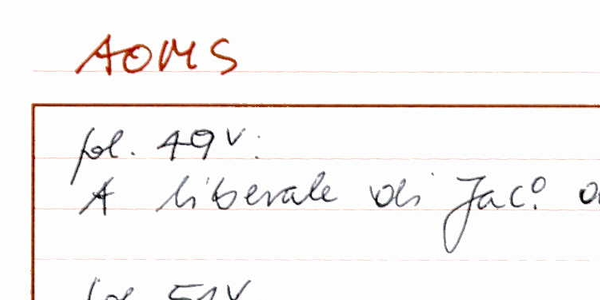 AOMS
fol. 49v.
A liberale di Jac.o
fol. 51v